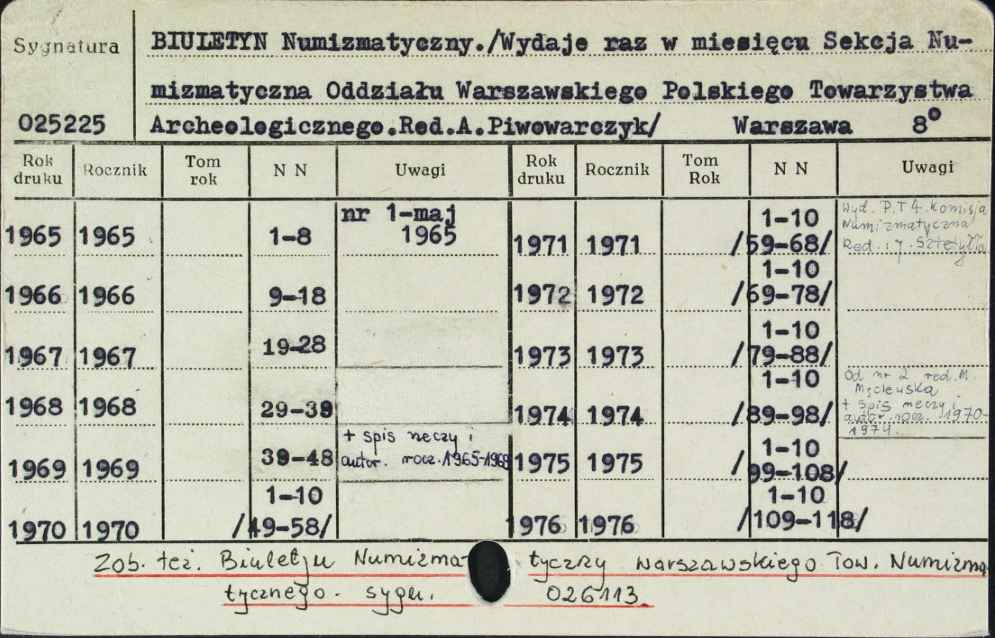 Sygnatura
BIULETYN Numizmatyczny./Wydaje raz w miesięcu Sekcja Nu-
mizmatyczna Oddziału Warszawskiego Polskiego Towarzystwa
025225 Archeologicznego.Red.A.Piwowarczyk/ Warszawa 8°
Rok druku Rocznik Tom rok N N Uwagi Rok druku Rocznik Tom Rok N N Uwagi
1965 1965 1-8 nr 1-maj 1965
1966 1966 9-18
1967 1967 19-28
1968 1968 29-38
1969 1969 39-48 + spis rzeczy i autor. rocz. 1965-1968
1970 1970 1-10 /49-58/
1971 1971 1-10 /59-68/ Wyd. P.T.A. Komisja Numizmatyczna Red.: J.
1972 1972 1-10 /69-78/
1973 1973 1-10 /79-88/
1974 1974 1-10 /89-98/ Od nr 2 red. M. + spis rzeczy i autor. rocz. 1970-1974.
1975 1975 1-10 /99-108/
1976 1976 1-10 /109-118/
Zob. też. Biuletyn Numizmatyczny warszawskiego Tow. Numizma
tycznego. sygn. 026113.